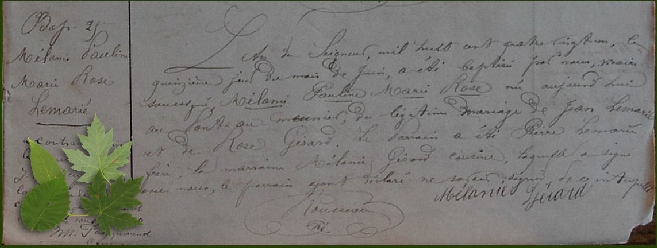 Bap. 25
Mélanie Pauline
Marie Rose
Lemarié
L'An du Seigneur, mil huit cent quatre vingt un, le
quinzième jour du mois de Juin, a été baptisée par nous, vicaire
soussigné, Mélanie Pauline Marie Rose née aujourd'hui
au Pont au meunier, de légitime mariage de Jean Lemarié
et de Rose Gérard, le parrain a été Pierre Lemarié
frère, la marraine Mélanie Gérard cousine, laquelle a signé
avec nous, le parrain ayant déclaré ne savoir signer, de ce interpellé
Mélanie Gérard